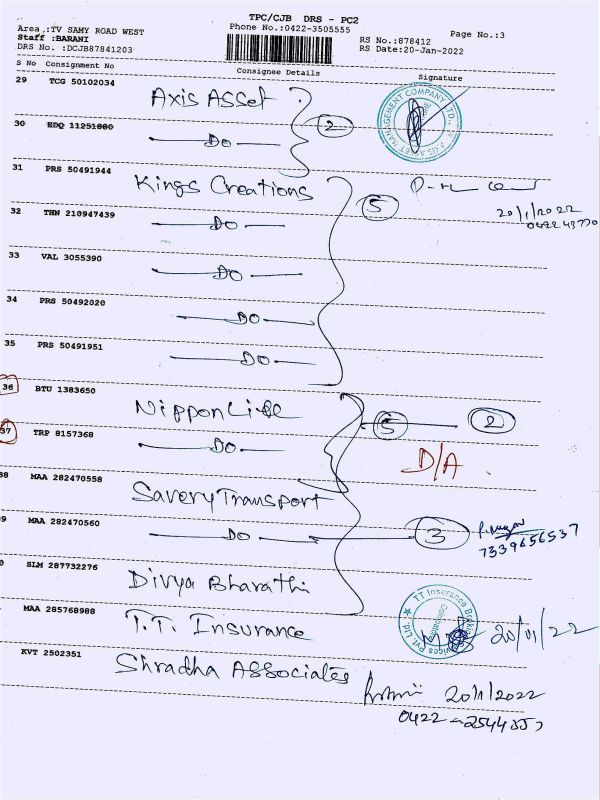 TPC/CJB DRS - PC2
Area .:TV SAMY ROAD WEST
Phone No.:0422-3505555
Page No.:3
Staff :BARANI
RS No.:878412
DRS No. :DCJB87841203
RS Date:20-Jan-2022
S No Consignment No Consignee Details Signature
29 TCG 50102034 Axis Asset
30 EDQ 11251880 DO 2
31 PRS 50491944 Kings Creations 5
20/1/2022
32 THN 210947439 DO
33 VAL 3055390 DO
34 PRS 50492020 DO
35 PRS 50491951 DO
36 BTU 1383650 Nippon Life 5 2
37 TRP 8157368 DO D/A
38 MAA 282470558 Savery Transport
39 MAA 282470560 DO 3
7339656537
SLM 287732276 Divya Bharathi
MAA 285768988 T.T. Insurance 20/01/22
KVT 2502351 Shradha Associates 20/1/2022